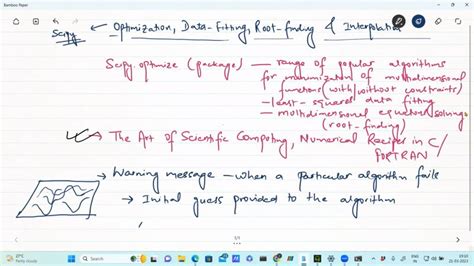 Bamboo Paper
Scipy – Optimization, Data-fitting, Root-finding & Interpolation
Scipy.optimize (package) — range of popular algorithms
for minimization of multidimensional
functions (with/without constraints)
— least-squares data fitting
— multidimensional equations solving
(root-finding)
The Art of Scientific Computing, Numerical Recipes in C/
FORTRAN
→ Warning message – when a particular algorithm fails
→ Initial guess provided to the algorithm
1/1
27°C
Search
ENG
IN